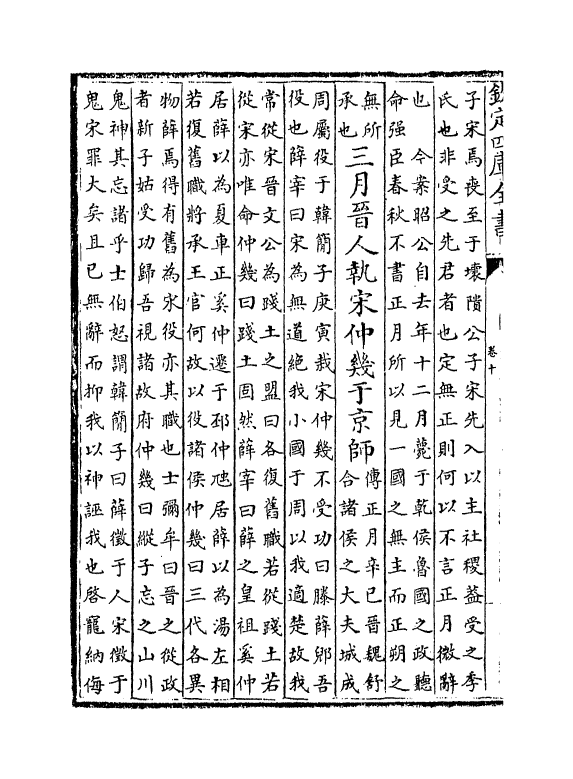 欽定四庫全書
卷十
子宋焉喪至于壞隤公子宋先入以主社稷益受之季
氏也非受之先君者也定無正則何以不言正月微辭
也　今案昭公自去年十二月薨于乾侯魯國之政聽
命强臣春秋不書正月所以見一國之無主而正朔之
無所
承也三月晉人執宋仲幾于京師傳正月辛巳晉魏舒
合諸侯之大夫城成
周屬役于韓簡子庚寅栽宋仲幾不受功曰滕薛郳吾
役也薛宰曰宋為無道絕我小國于周以我適楚故我
常從宋晉文公為踐土之盟曰各復舊職若從踐土若
從宋亦唯命仲幾曰踐土固然薛宰曰薛之皇祖奚仲
居薛以為夏車正奚仲遷于邳仲虺居薛以為湯左相
若復舊職將承王官何故以役諸侯仲幾曰三代各異
物薛焉得有舊為宋役亦其職也士彌牟曰晉之從政
者新子姑受功歸吾視諸故府仲幾曰縱子忘之山川
鬼神其忘諸乎士伯怒謂韓簡子曰薛徵于人宋徵于
鬼宋罪大矣且已無辭而抑我以神誣我也啓寵納侮